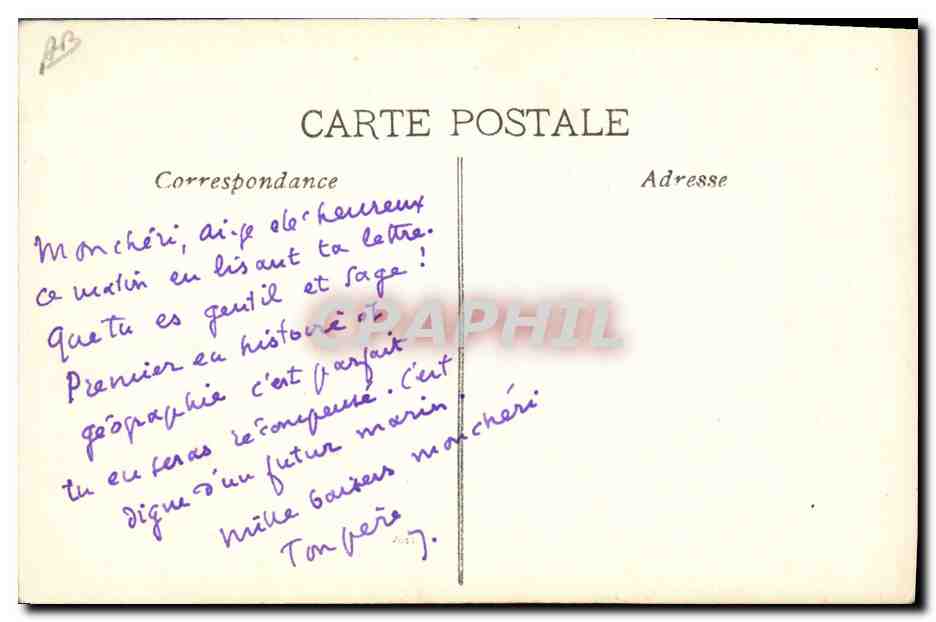 AB
CARTE POSTALE
Correspondance
Adresse
Mon chéri, ai-je été heureux
ce matin en lisant ta lettre.
Que tu es gentil et sage !
Premier en histoire et
géographie c'est parfait
tu en seras récompensé. C'est
digne d'un futur marin.
Mille baisers mon chéri
Ton père
J.
CPAPHIL